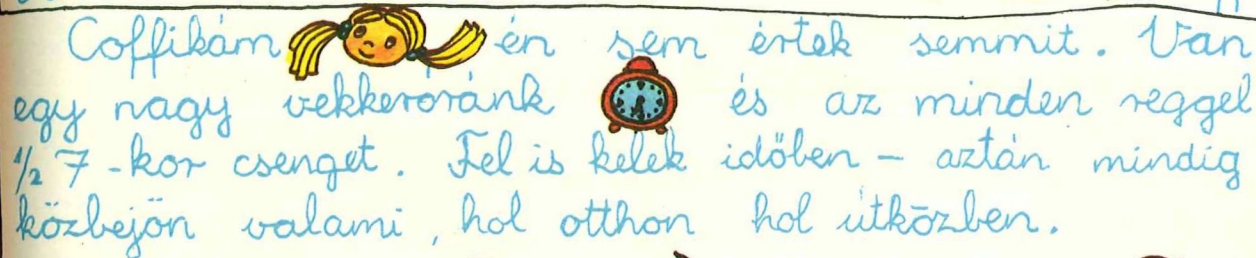 Coffikám én sem értek semmit. Van
egy nagy vekkeróránk és az minden reggel
1/2 7-kor csenget. Fel is kelek időben – aztán mindig
közbejön valami, hol otthon hol útközben.